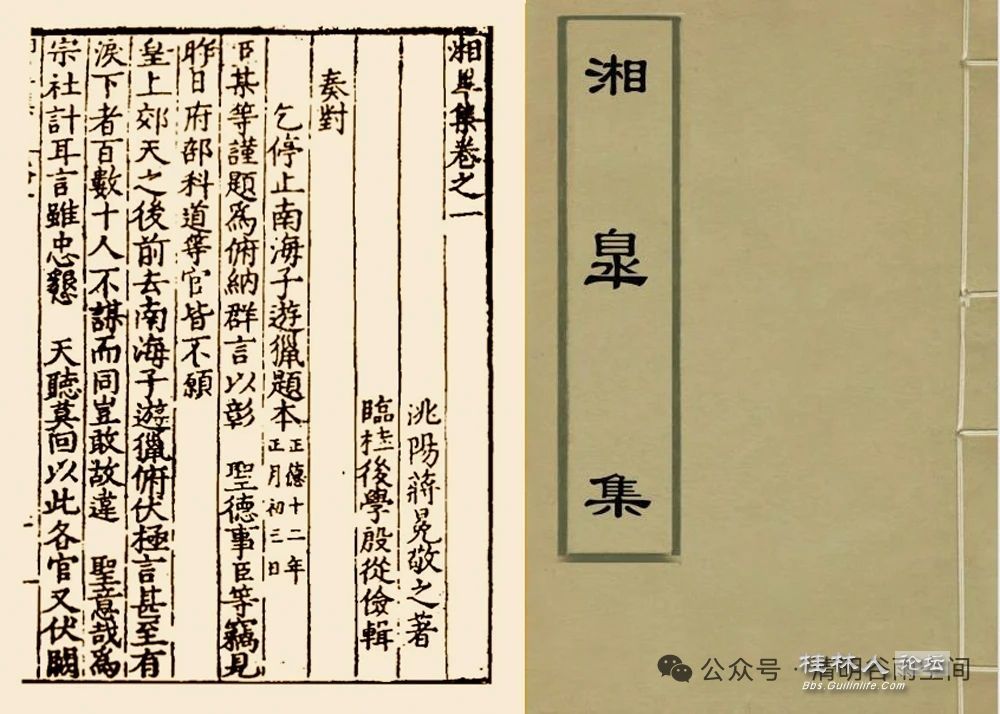 湘皋集卷之一
洮陽蔣冕敬之著
臨桂後學殷從儉輯
奏對
乞停止南海子遊獵題本
正德十二年
正月初三日
臣某等謹題爲俯納群言以彰 聖德事臣等竊見
昨日府部科道等官皆不願
皇上郊天之後前去南海子遊獵俯伏極言甚至有
淚下者百數十人不謀而同豈敢故違 聖意哉爲
宗社計耳言雖忠懇 天聽莫回以此各官又伏闕
湘皋集
公众号·清明谷雨空间
桂林人论坛
Bbs.Guilinlife.Com